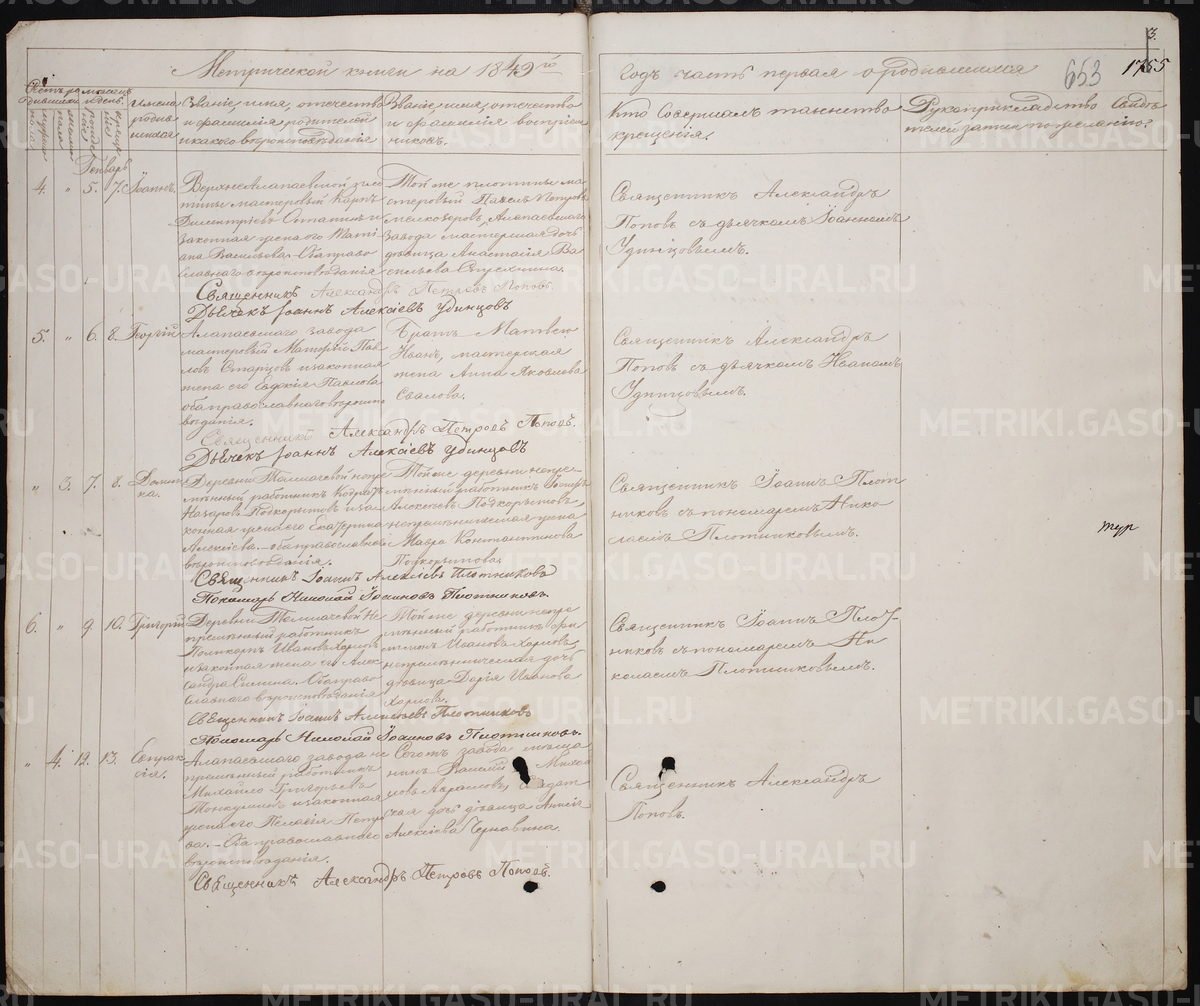 3.
Метрической книги на 1849го
Годъ часть первая о родившихся
653
1755
Имена родив
шихся
Званіе, имя, отечество
и фамилія родителей
и какого вѣроисповѣданія
Званіе, имя, отечество
и фамилія воспріем
никовъ.
Кто совершалъ таинство
крещенія.
Рукоприкладство свидѣ
телей записи по желанію.
Генварь
4. " 5. 7. Іоаннъ.
Верхнеалапаевской пло
тины мастеровый Карпъ
Дементріевъ и
законная жена его
Васильева. Оба право
славнаго вѣроисповѣданія
Той же плотины ма
стеровый Павелъ Петровъ
Алапаевскаго
завода мастерская дочь
дѣвица Анастасія Ва
сильева
Священникъ Александръ
Поповъ съ дьячкомъ Іоанномъ
Удинцовымъ.
Священникъ Александръ Петровъ Поповъ.
Дьячекъ Іоаннъ Алексіевъ Удинцовъ
5. " 6. 8. Георгій
Алапаевскаго завода
мастеровый Матвѣй Пав
ловъ Старцовъ и законная
жена его Евдокія Павлова
оба православнаго вѣроиспо
вѣданія.
Братъ Матвѣя
Иванъ, мастерская
жена Анна Яковлева
Священникъ Александръ
Поповъ съ дьячкомъ Иваномъ
Удинцовымъ.
Священникъ Александръ Петровъ Поповъ.
Дьячекъ Іоаннъ Алексіевъ Удинцовъ
" 3. 7. 8. Домни
ка.
Деревни Толмачевой непре
мѣнный работникъ
Назаровъ Подкорытовъ и за
конная жена его Екатерина
Алексіева. - оба православнаго
вѣроисповѣданія.
Той же деревни непре
мѣнный работникъ
Алексѣевъ Подкорытовъ,
непремѣнническая жена
Мавра Константинова
Подкорытова.
Священникъ Іоаннъ Плот
никовъ съ пономаремъ Нико
лаемъ Плотниковымъ.
Священникъ Іоаннъ Алексіевъ Плотниковъ
Пономарь Николай Іоанновъ Плотниковъ.
6. " 9. 10. Григорій
Деревни Толмачевой не
премѣнный работникъ
Поликарпъ Ивановъ Хорловъ
и законная жена его Алек
сандра Силина. Оба право
славнаго вѣроисповѣданія
Той же деревни непре
мѣнный работникъ
Ивановъ Хорловъ,
непремѣнническая дочь
дѣвица Дарія Иванова
Хорлова.
Священникъ Іоаннъ Плот
никовъ съ пономаремъ Ни
колаемъ Плотниковымъ.
Священникъ Іоаннъ Алексіевъ Плотниковъ
Пономарь Николай Іоанновъ Плотниковъ.
" 4. 12. 13. Евпрак
сія.
Алапаевскаго завода не
премѣнный работникъ
Михайло Григорьевъ
и законная
жена его Пелагія Петро
ва. - Оба православнаго
вѣроисповѣданія.
завода
нинъ Василій Михай
ловъ Авраамовъ, солдат
ская дочь дѣвица Анисія
Алексіева Чернавина.
Священникъ Александръ
Поповъ.
Священникъ Александръ Петровъ Поповъ.
METRIKI.GASO-URAL.RU